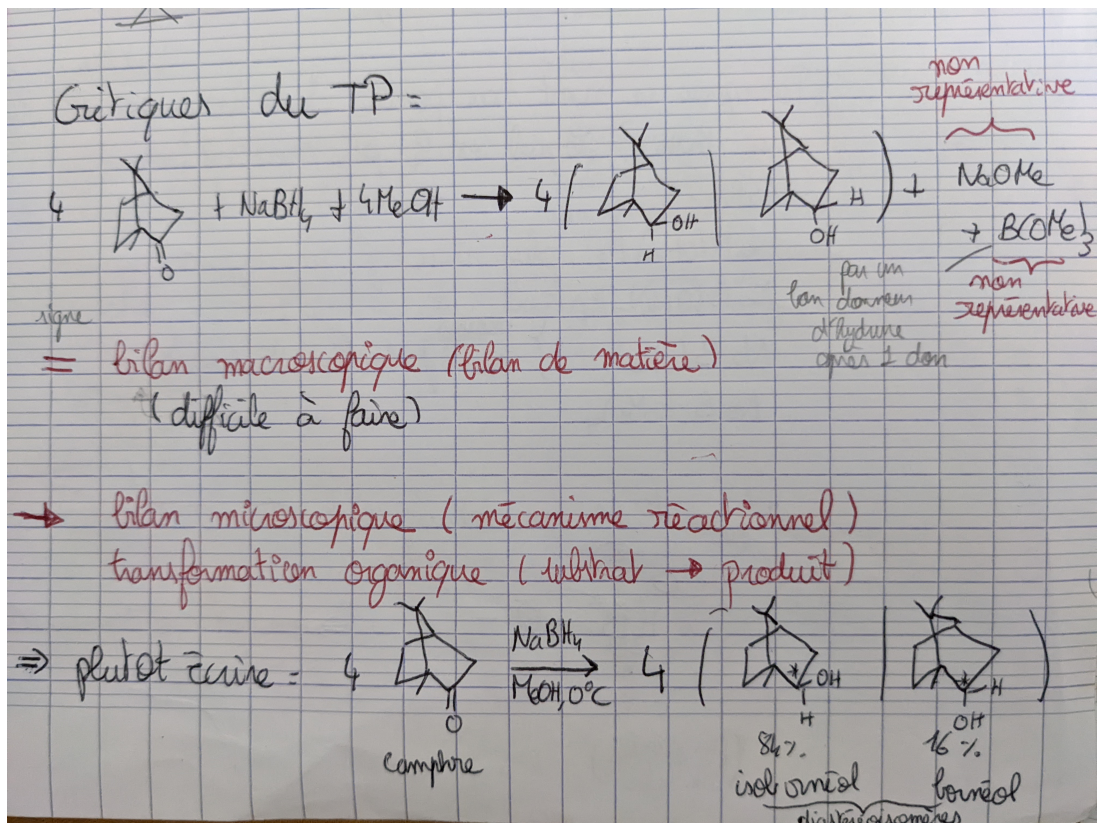 Critiques du TP =
non
représentative
4 + NaBH4 + 4MeOH → 4 ( OH H | H OH ) + NaOMe
O
+ B(OMe)3
non
représentative
pas un
bon donneur
d'hydrure
après 1 don
signe
= bilan macroscopique (bilan de matière)
(difficile à faire)
→ bilan microscopique (mécanisme réactionnel)
transformation organique (substrat → produit)
⇒ plutot écrire = 4 NaBH4 → 4 ( * OH | * H )
MeOH, 0°C
O H OH
camphre
84% 16 %
isobornéol bornéol
diastéréoisomères